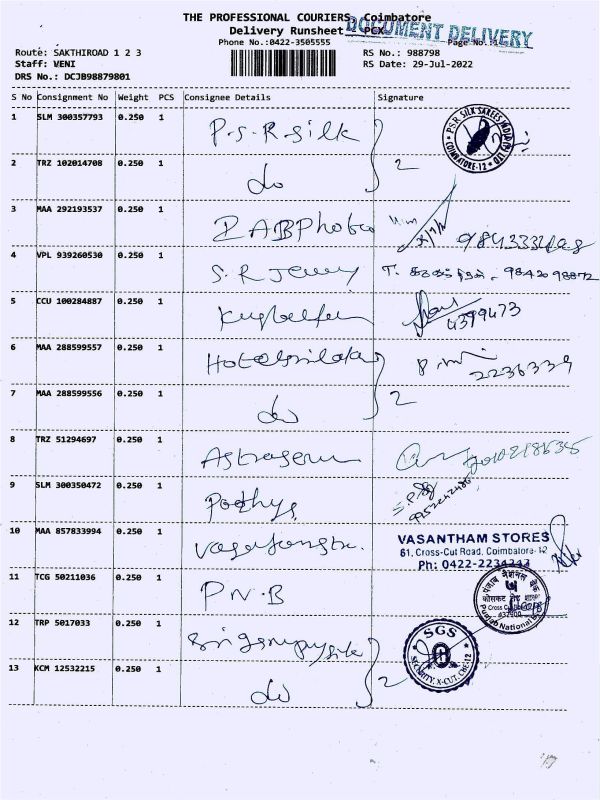 THE PROFESSIONAL COURIERS, Coimbatore
Delivery Runsheet PCX
DOCUMENT DELIVERY
Phone No.:0422-3505555
Page No.:1
Route: SAKTHIROAD 1 2 3
RS No.: 988798
Staff: VENI
RS Date: 29-Jul-2022
DRS No.: DCJB98879801
S No Consignment No Weight PCS Consignee Details Signature
1 SLM 300357793 0.250 1 P.S.R.Silk
PSR SILK SAREES INDIA COIMBATORE-12
2 TRZ 102014708 0.250 1 do 2
3 MAA 292193537 0.250 1 ZABPhoto
4 VPL 939260530 0.250 1 S.R Jewry
5 CCU 100284887 0.250 1 4399473
6 MAA 288599557 0.250 1 2236339
7 MAA 288599556 0.250 1 do 2
8 TRZ 51294697 0.250 1
9 SLM 300350472 0.250 1 Pothys
10 MAA 857833994 0.250 1
VASANTHAM STORES
61, Cross-Cut Road, Coimbatore-12
Ph: 0422-2234343
11 TCG 50211036 0.250 1 P.N.B
पंजाब नैशनल बैंक
Punjab National
12 TRP 5017033 0.250 1
SGS
SECURITY, X-CUT, CBE-12
13 KCM 12532215 0.250 1 do 2